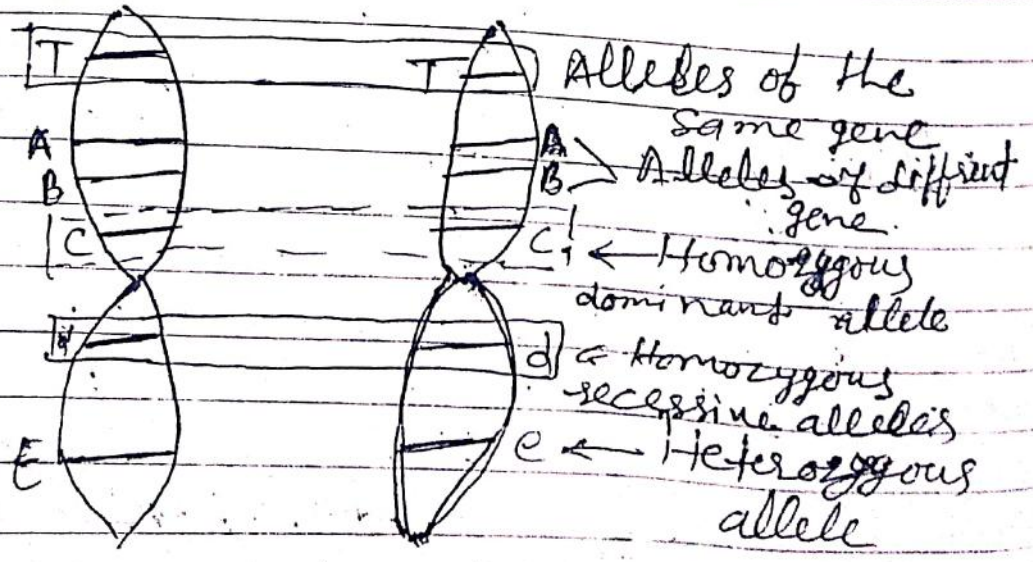 T T Alleles of the
same gene
A A
B B Alleles of diffrent
gene.
C C ← Homozygous
dominant allele
d d ← Homozygous
recessive alleles
E e ← Heterozygous
allele